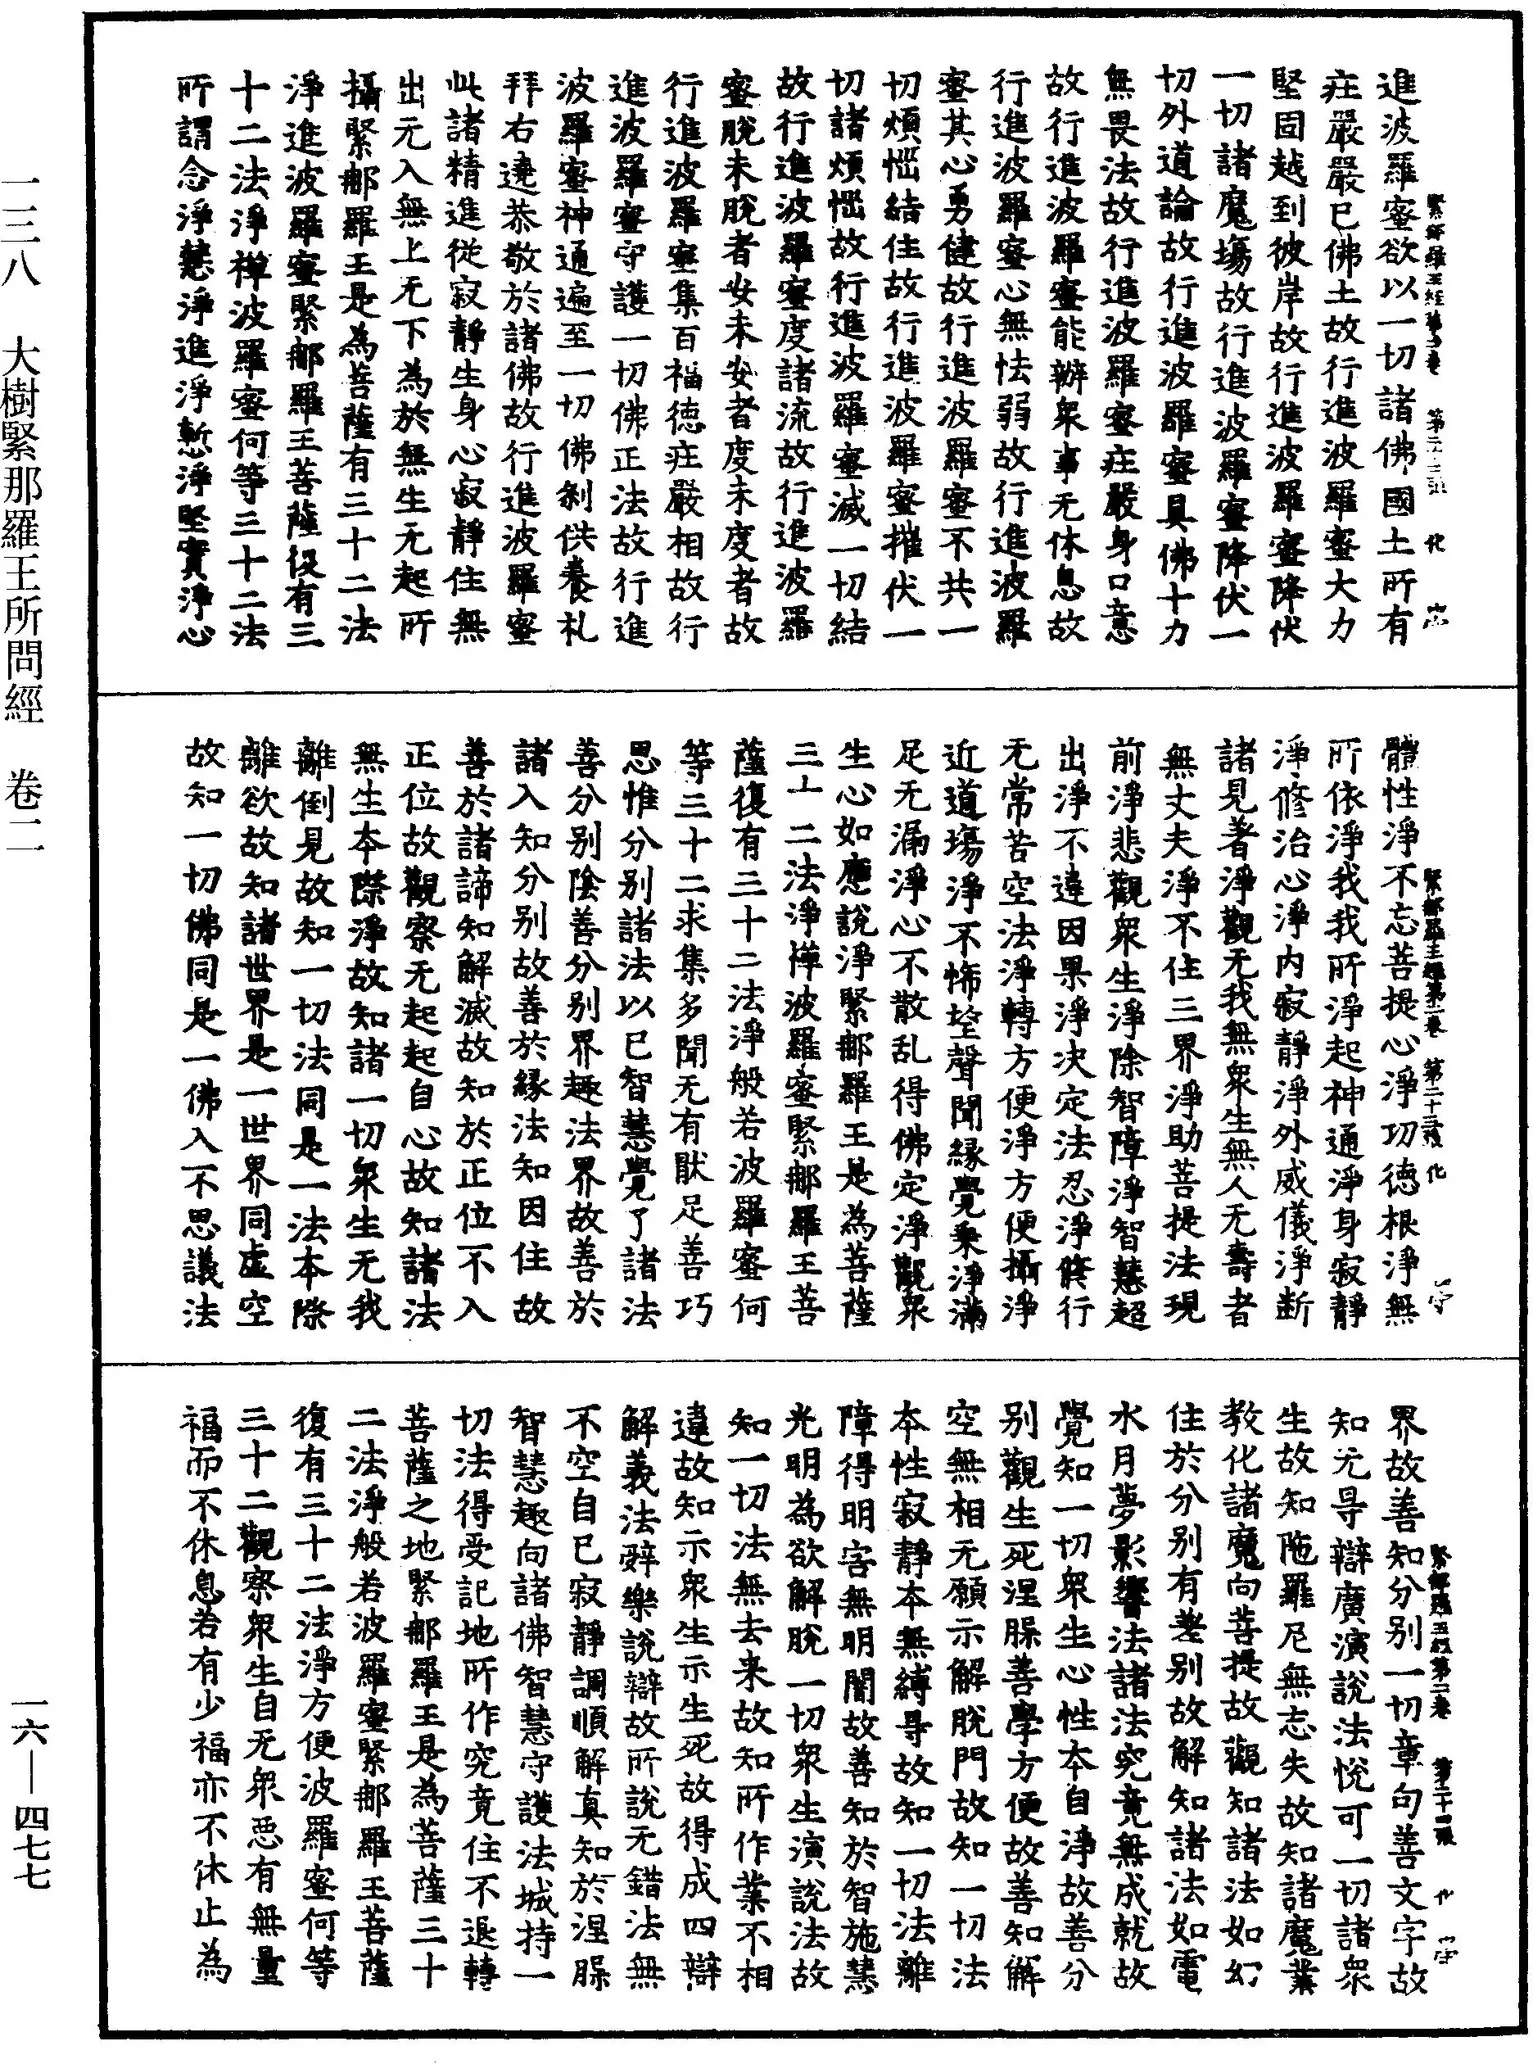 進波羅蜜欲以一切諸佛國土所有
莊嚴嚴已佛土故行進波羅蜜大力
堅固越到彼岸故行進波羅蜜降伏
一切諸魔場故行進波羅蜜降伏一
切外道論故行進波羅蜜具佛十力
無畏法故行進波羅蜜莊嚴身口意
故行進波羅蜜能辦眾事无休息故
行進波羅蜜心無怯弱故行進波羅
蜜其心勇健故行進波羅蜜不共一
切煩惱結住故行進波羅蜜摧伏一
切諸煩惱故行進波羅蜜滅一切結
故行進波羅蜜度諸流故行進波羅
蜜脫未脫者安未安者度未度者故
行進波羅蜜集百福德莊嚴相故行
進波羅蜜守護一切佛正法故行進
波羅蜜神通遍至一切佛剎供養礼
拜右遶恭敬於諸佛故行進波羅蜜
此諸精進從寂靜生身心寂靜住無
出无入無上无下為於無生无起所
攝緊那羅王是為菩薩有三十二法
淨進波羅蜜緊那羅王菩薩復有三
十二法淨禪波羅蜜何等三十二法
所謂念淨慧淨進淨慙淨堅實淨心
體性淨不忘菩提心淨功德根淨無
所依淨我我所淨起神通淨身寂靜
淨修治心淨內寂靜淨外威儀淨断
諸見著淨觀无我無眾生無人无壽者
無丈夫淨不住三界淨助菩提法現
前淨悲觀眾生淨除智障淨智慧超
出淨不違因果淨决定法忍淨修行
无常苦空法淨轉方便淨方便攝淨
近道場淨不悕望聲聞緣覺乘淨滿
足无漏淨心不散乱得佛定淨觀眾
生心如應說淨緊那羅王是為菩薩
三十二法淨禪波羅蜜緊那羅王菩
薩復有三十二法淨般若波羅蜜何
等三十二求集多聞无有猒足善巧
思惟分別諸法以巳智慧覺了諸法
善分別陰善分別界趣法界故善於
諸入知分別故善於緣法知因住故
善於諸諦知解滅故知於正位不入
正位故觀察无起起自心故知諸法
無生本際淨故知諸一切眾生无我
離倒見故知一切法同是一法本際
離欲故知諸世界是一世界同虛空
故知一切佛同是一佛入不思議法
界故善知分別一切章句善文字故
知无㝵辯廣演說法悅可一切諸眾
生故知陁羅尼無忘失故知諸魔業
教化諸魔向菩提故觀知諸法如幻
住於分別有差別故解知諸法如電
水月夢影響法諸法究竟無成就故
覺知一切眾生心性本自淨故善分
別觀生死涅槃善學方便故善知解
空無相无願示解脫門故知一切法
本性寂靜本無縛㝵故知一切法離
障得明害無明闇故善知於智施慧
光明為欲解脫一切眾生演說法故
知一切法無去来故知所作業不相
違故知示眾生示生死故得成四辯
解義法辭樂說辯故所說无錯法無
不空自已寂靜調順解真知於涅槃
智慧趣向諸佛智慧守護法城持一
切法得受記地所作究竟住不退轉
菩薩之地緊那羅王是為菩薩三十
二法淨般若波羅蜜緊那羅王菩薩
復有三十二法淨方便波羅蜜何等
三十二觀察眾生自无眾惡有無量
福而不休息若有少福亦不休止為
緊那羅王經第二卷 第二十三張 化
緊那羅王經第二卷 第二十四張
一三八 大樹緊那羅王所問經 卷二
一六—四七七